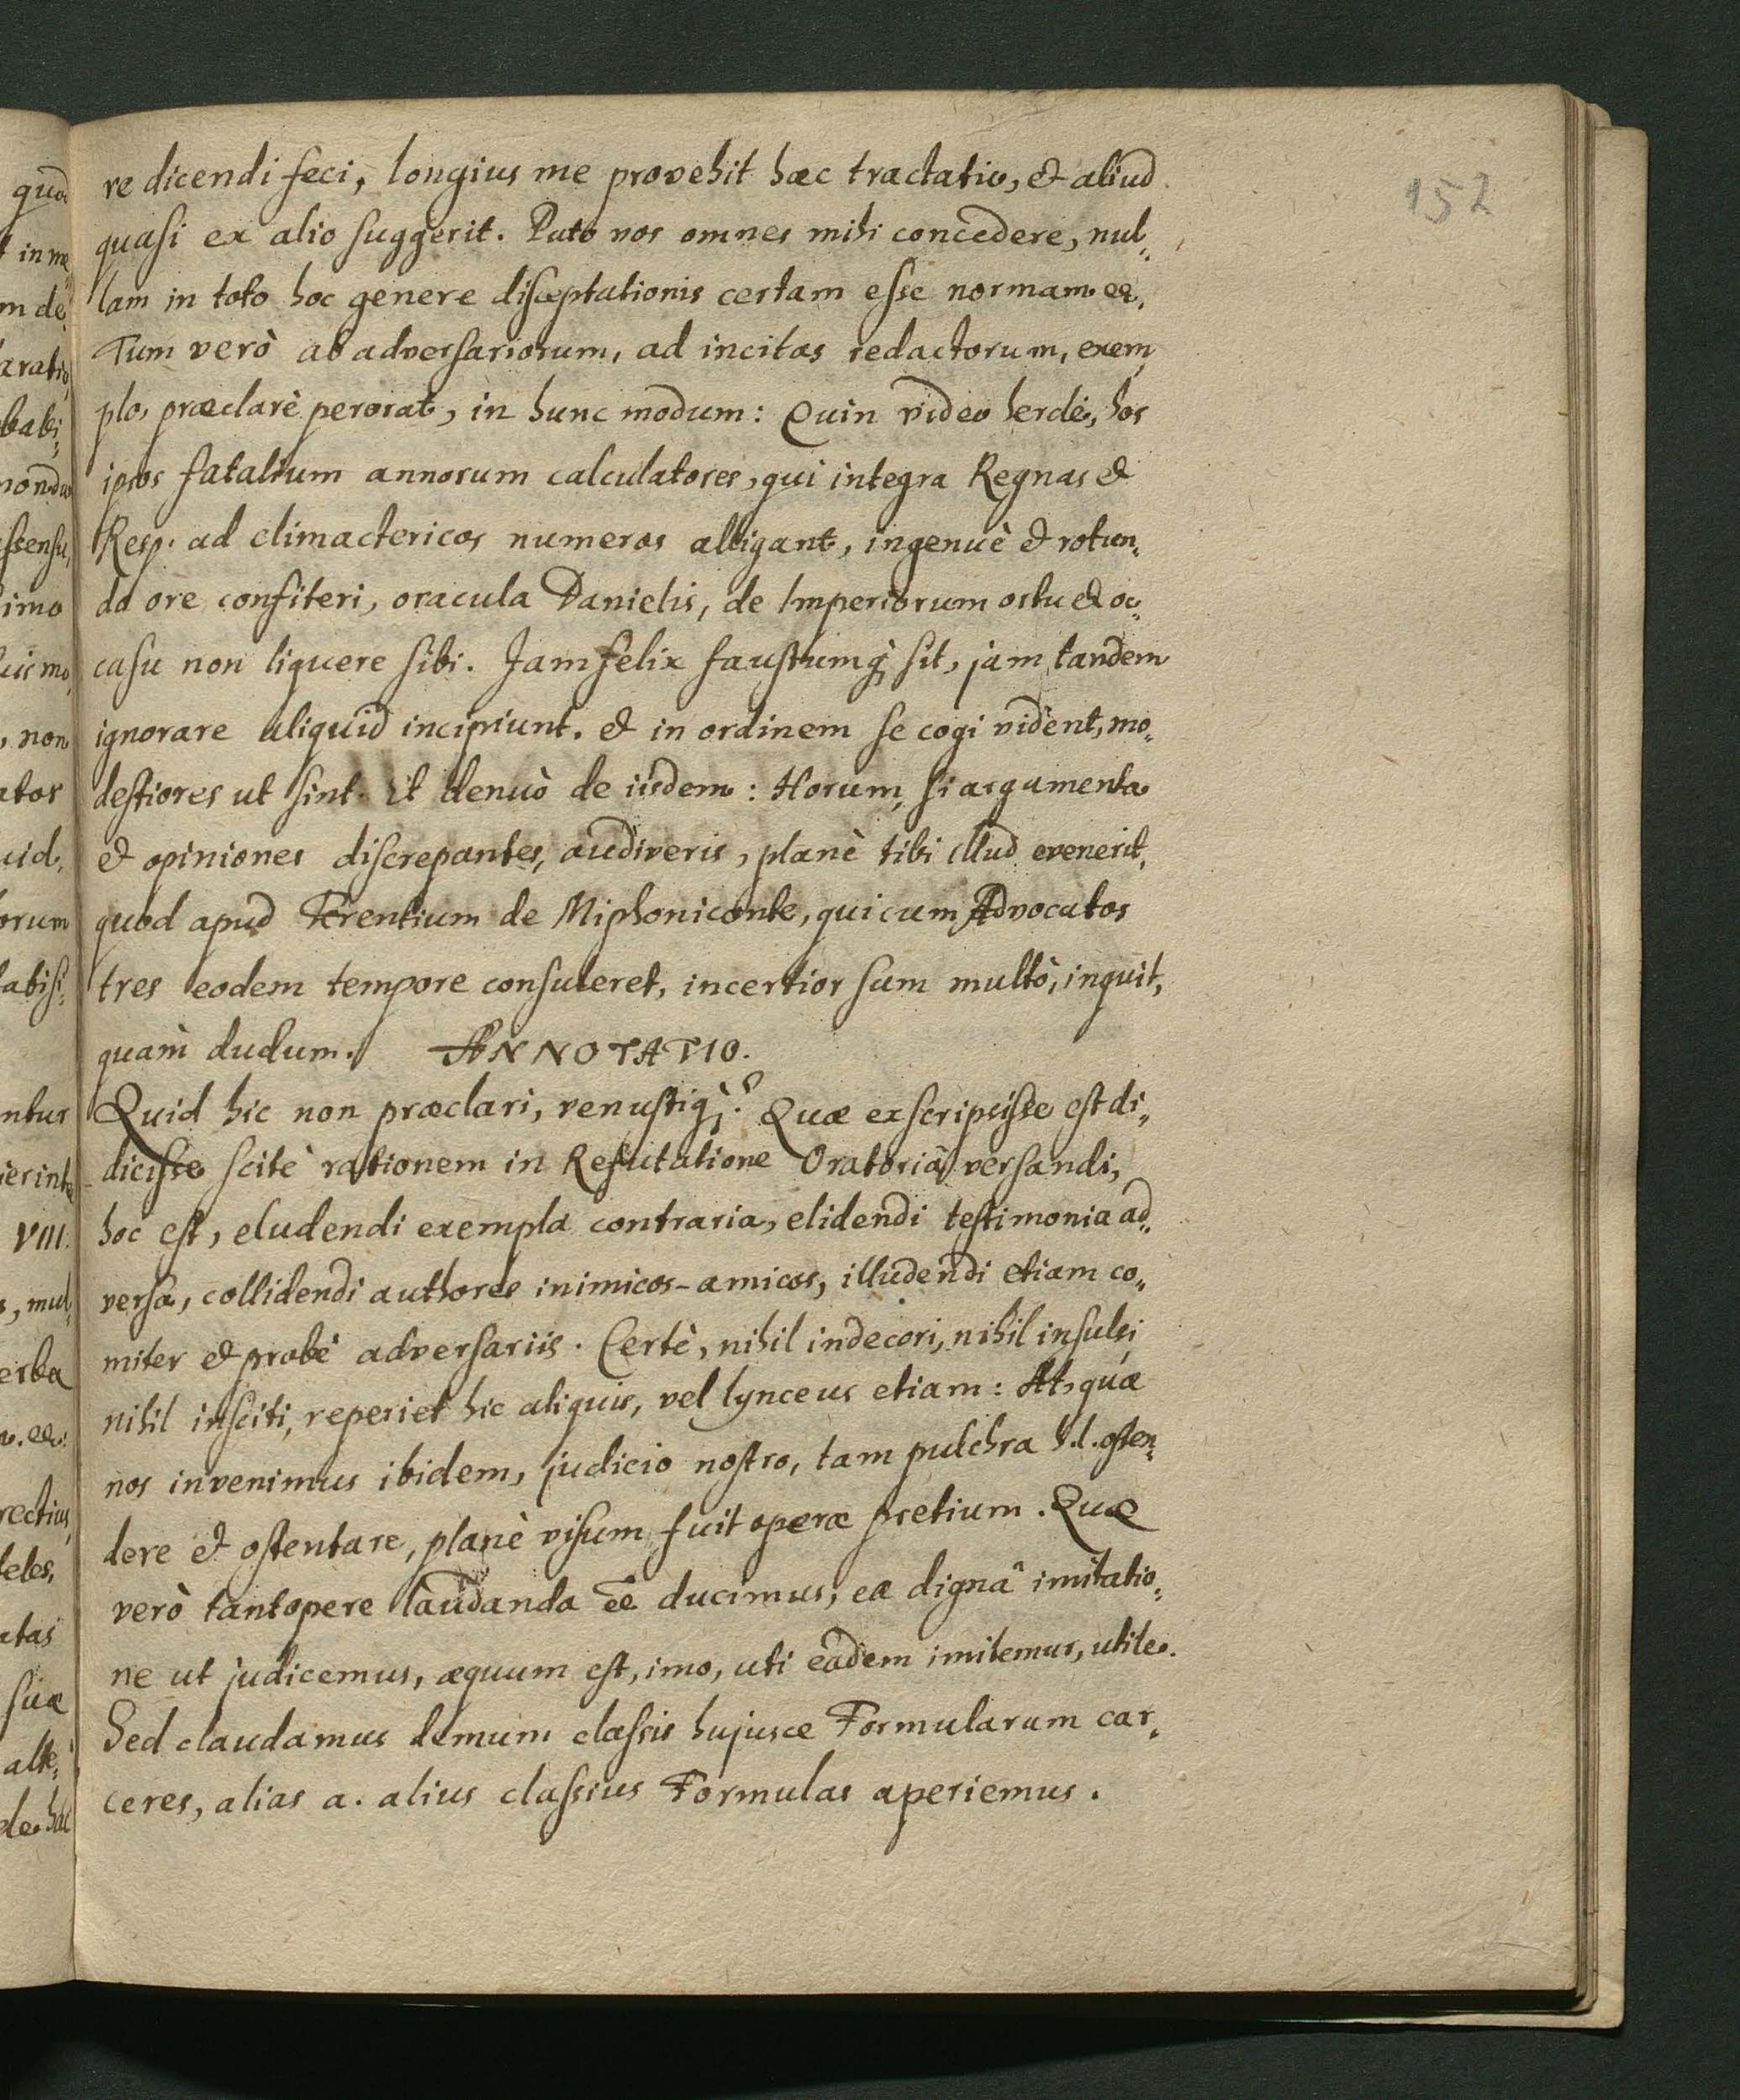 152
re dicendi feci, longius me provehit hæc tractatio, & aliud
quasi ex alio suggerit. Puto vos omnes mihi concedere, nul-
lam in toto hoc genere disceptationis certam esse normam ee.
Tum verò ab adversariorum, ad incitas redactorum, exem-
plo, præclarè perorat, in hunc modum: Quin video hercle, hos
ipsos fatalium annorum calculatores, qui integra Regna &
Resp. ad climactericos numeros alligant, ingenuè & rotun-
do ore confiteri, oracula Danielis, de Imperiorum ortu & oc-
casu non liquere sibi. Jam felix faustumq; sit, jam tandem
ignorare aliquid incipiunt. & in ordinem se cogi vident, mo-
destiores ut sint. It denuò de iisdem: Horum, si argumenta
& opiniones discrepantes, audiveris, planè tibi illud evenerit,
quod apud Terentium de Miphoniconte, qui cum Advocatos
tres eodem tempore consuleret, incertior sum multò, inquit,
quàm dudum. ANNOTATIO.
Quid hic non præclari, venustiq;? Quæ exscripsisse est di-
dicisse scitè rationem in Refutatione Oratoriâ versandi,
hoc est, eludendi exempla contraria, elidendi testimonia ad-
versa, collidendi authores inimicos-amicos, illudendi etiam co-
miter & probè adversariis. Certè, nihil indecori, nihil insulsi,
nihil insciti, reperiet hic aliquis, vel lynceus etiam: At, quæ
nos invenimus ibidem, judicio nostro, tam pulchra h.l. osten-
dere & ostentare, planè visum fuit operæ pretium. Quæ
verò tantopere laudanda ēe ducimus, ea dignâ imitatio-
ne ut judicemus, æquum est, imo, uti eadem imitemur, utile.
Sed claudamus demum classis hujusce Formularum car-
ceres, alias a. alius classius Formulas aperiemus.